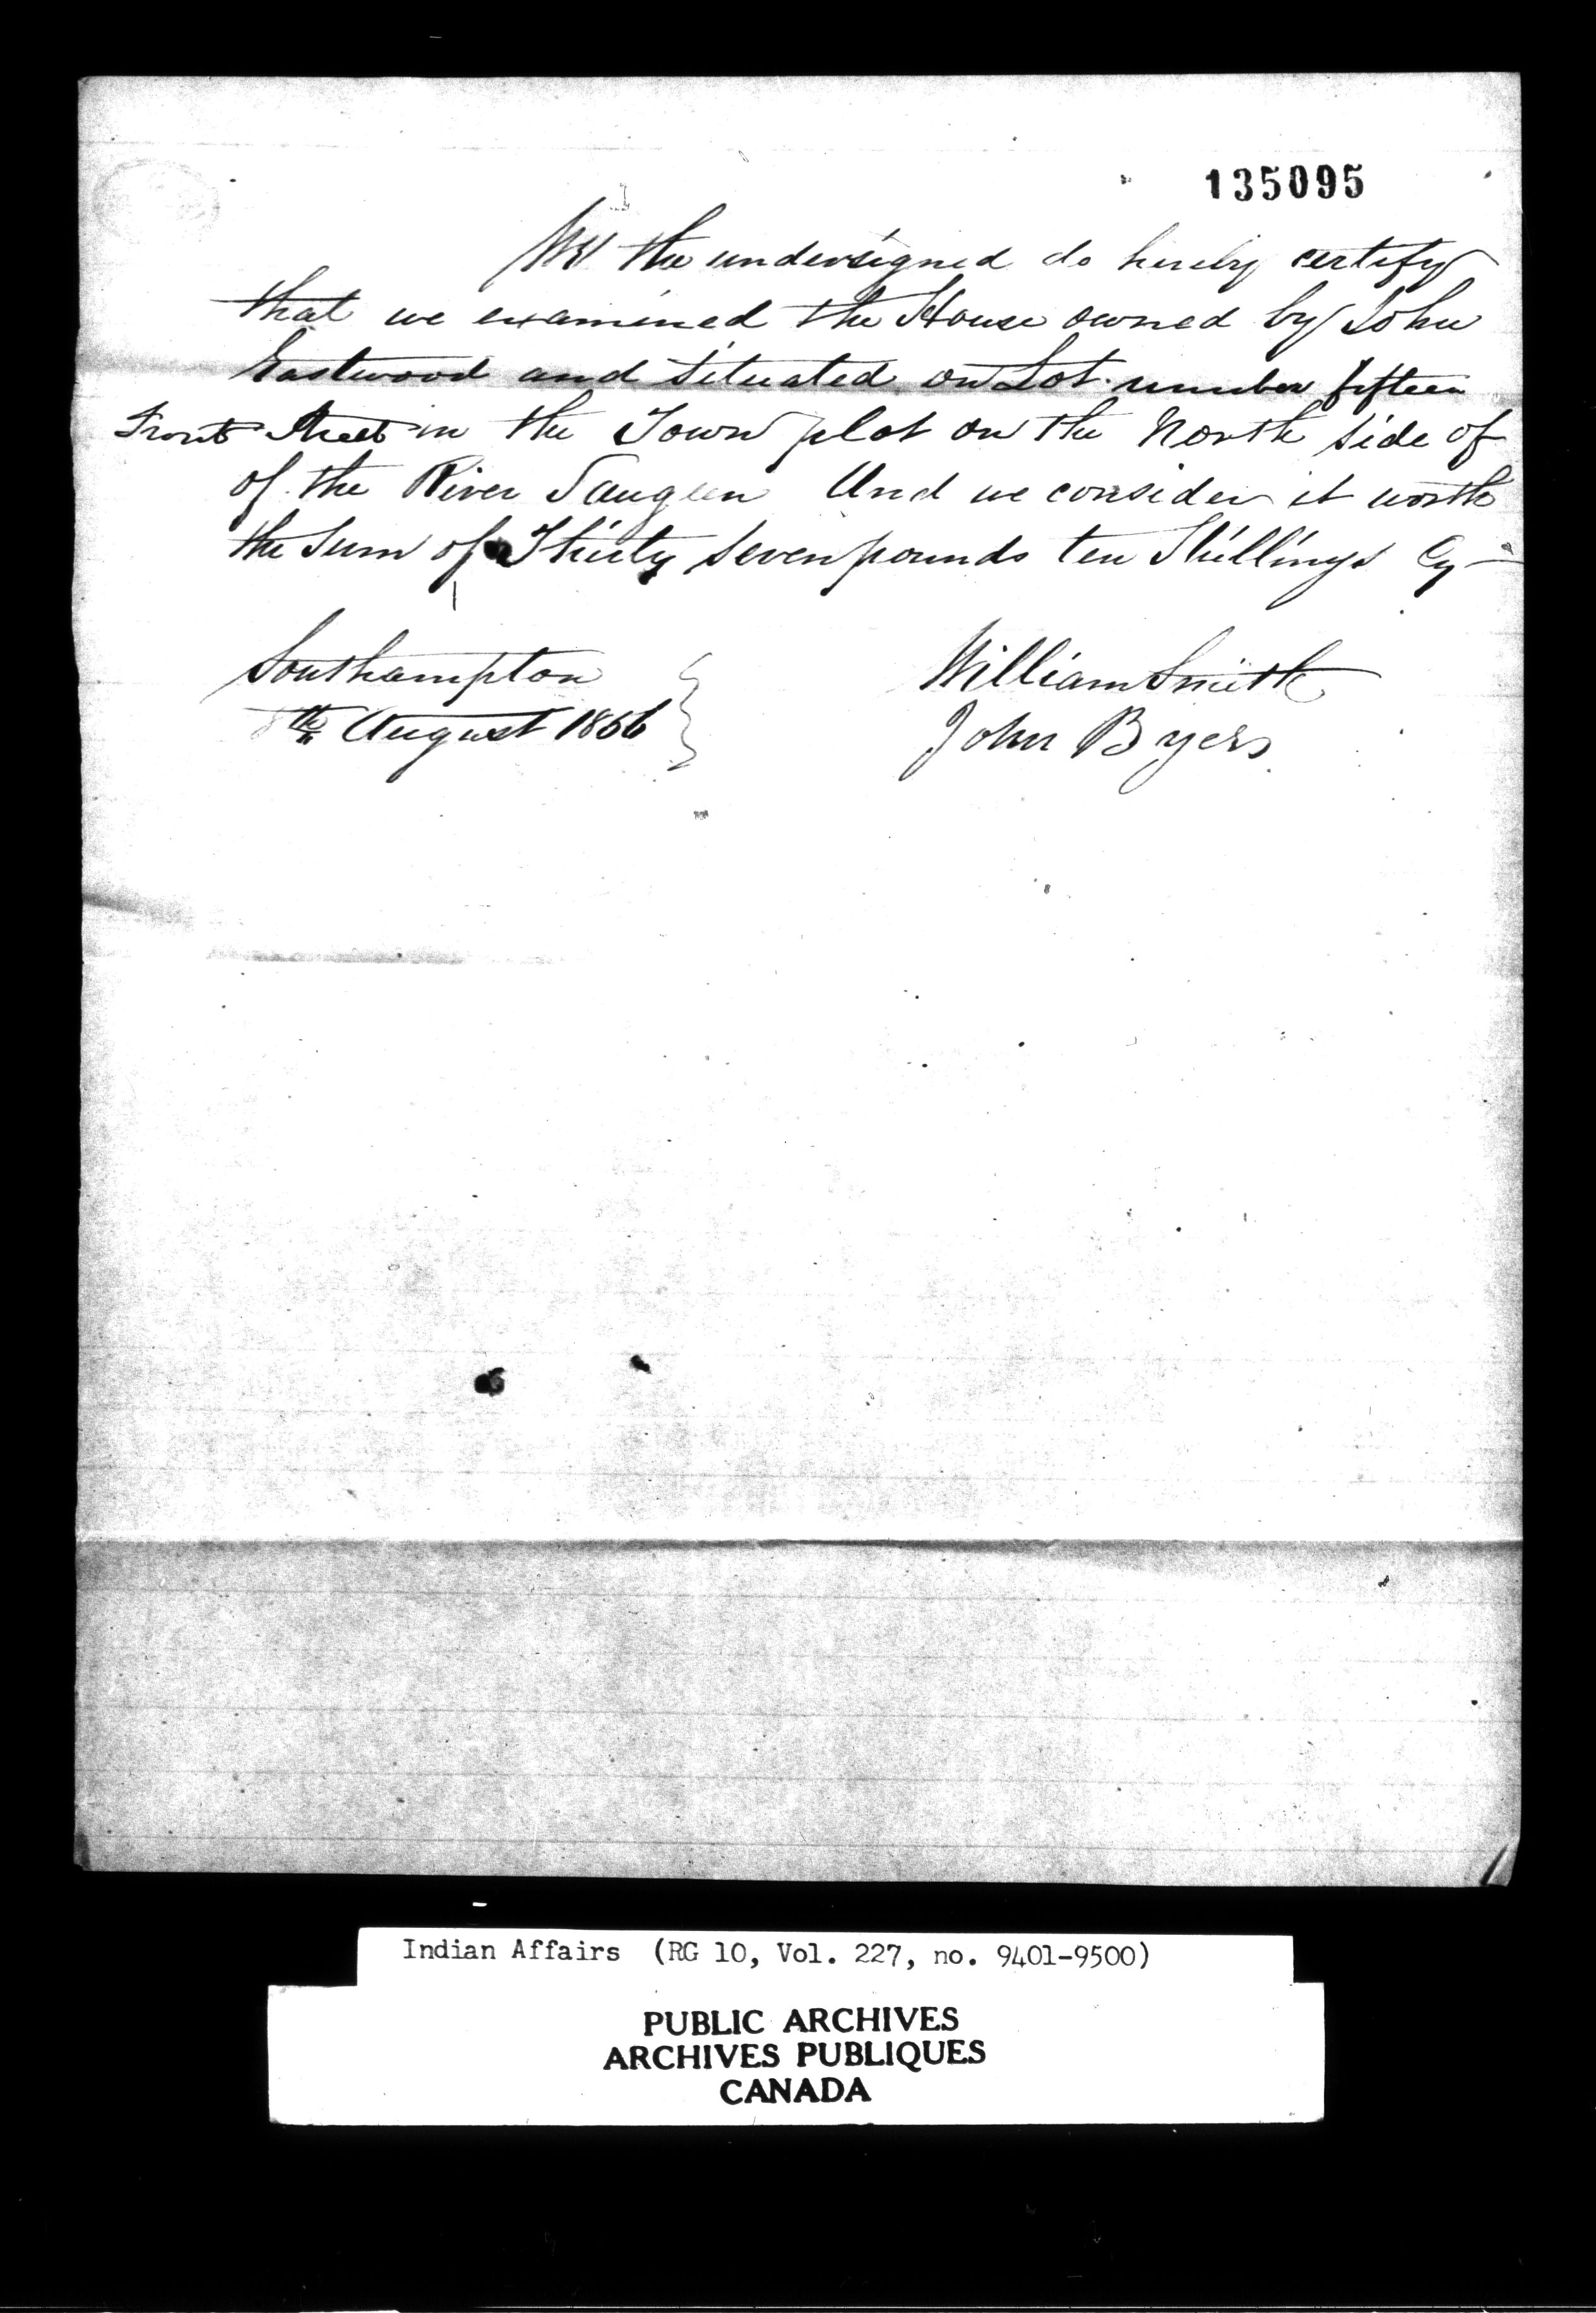 135095
We the undersigned do hereby certify
that we examined the House owned by John
Eastwood and Situated on Lot number fifteen
Front Street in the Town plot on the North Side of
of the River Saugeen And we consider it worth
the Sum of Thirty Seven pounds ten Shillings Cy
Southampton
8th August 1856
William Smith
John Byers
Indian Affairs (RG 10, Vol. 227, no. 9401-9500)
PUBLIC ARCHIVES
ARCHIVES PUBLIQUES
CANADA